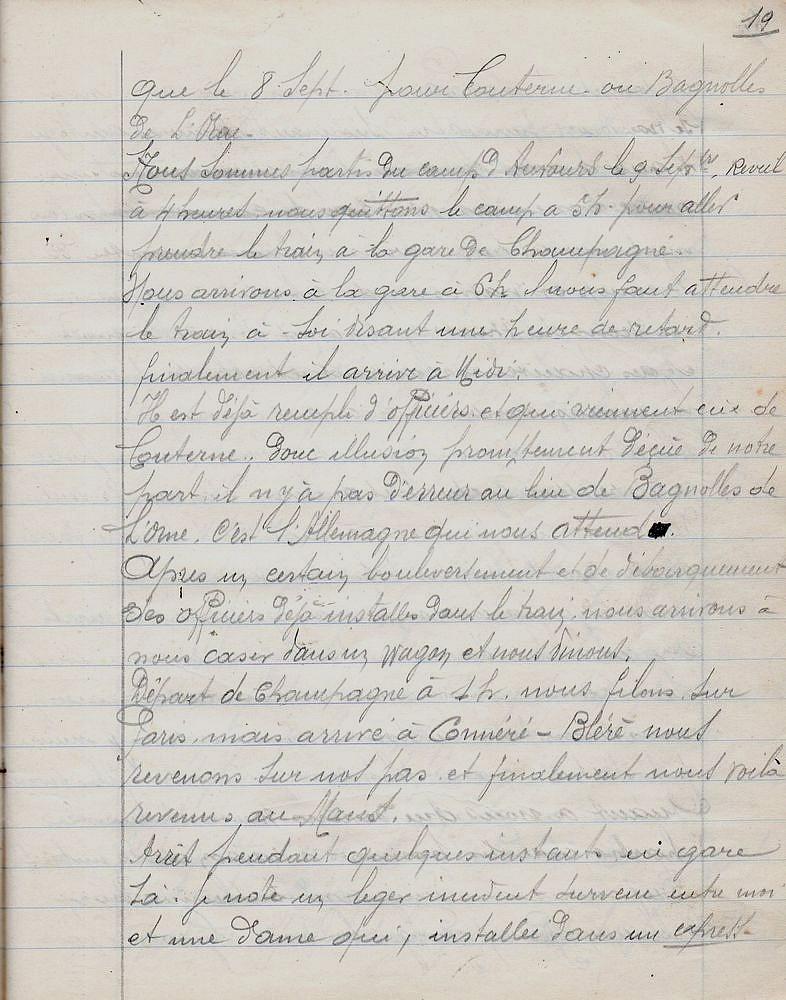 19
que le 8 Sept. pour Couterne ou Bagnolles
de L'Orne.
Nous sommes partis du camp d'Auvours le 9 Septbre. Réveil
à 4 heures. nous quittons le camp a 5h. pour aller
prendre le train à la gare de Champagné.
Nous arrivons à la gare à 6h il nous faut attendre
le train à soi disant une heure de retard.
finalement il arrive à Midi.
Il est déjà rempli d'officiers et qui viennent eux de
Couterne.. donc illusion promptement déçue de notre
part. il n'y à pas d'erreur au lieu de Bagnolles de
L'Orne. C'est l'Allemagne qui nous attend.
Après un certain bouleversement et de débarquement
des officiers déjà installés dans le train nous arrivons à
nous caser dans un wagon et nous dinons.
Départ de Champagné à 1h. nous filons sur
Paris. mais arrivé à Connéré - Bléré nous
revenons sur nos pas et finalement nous voilà
revenus au Mans.
Arrêt pendant quelques instants en gare
Là. je note un leger incident survenu entre moi
et une dame qui, installée dans un express